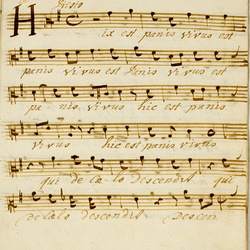 Giusto
Hic est panis vivus est
panis vivus est Panis vivus est
panis vivus hic est panis
vivus hic est panis vivus
qui de cælo descendit qui
de cælo descendit Descen